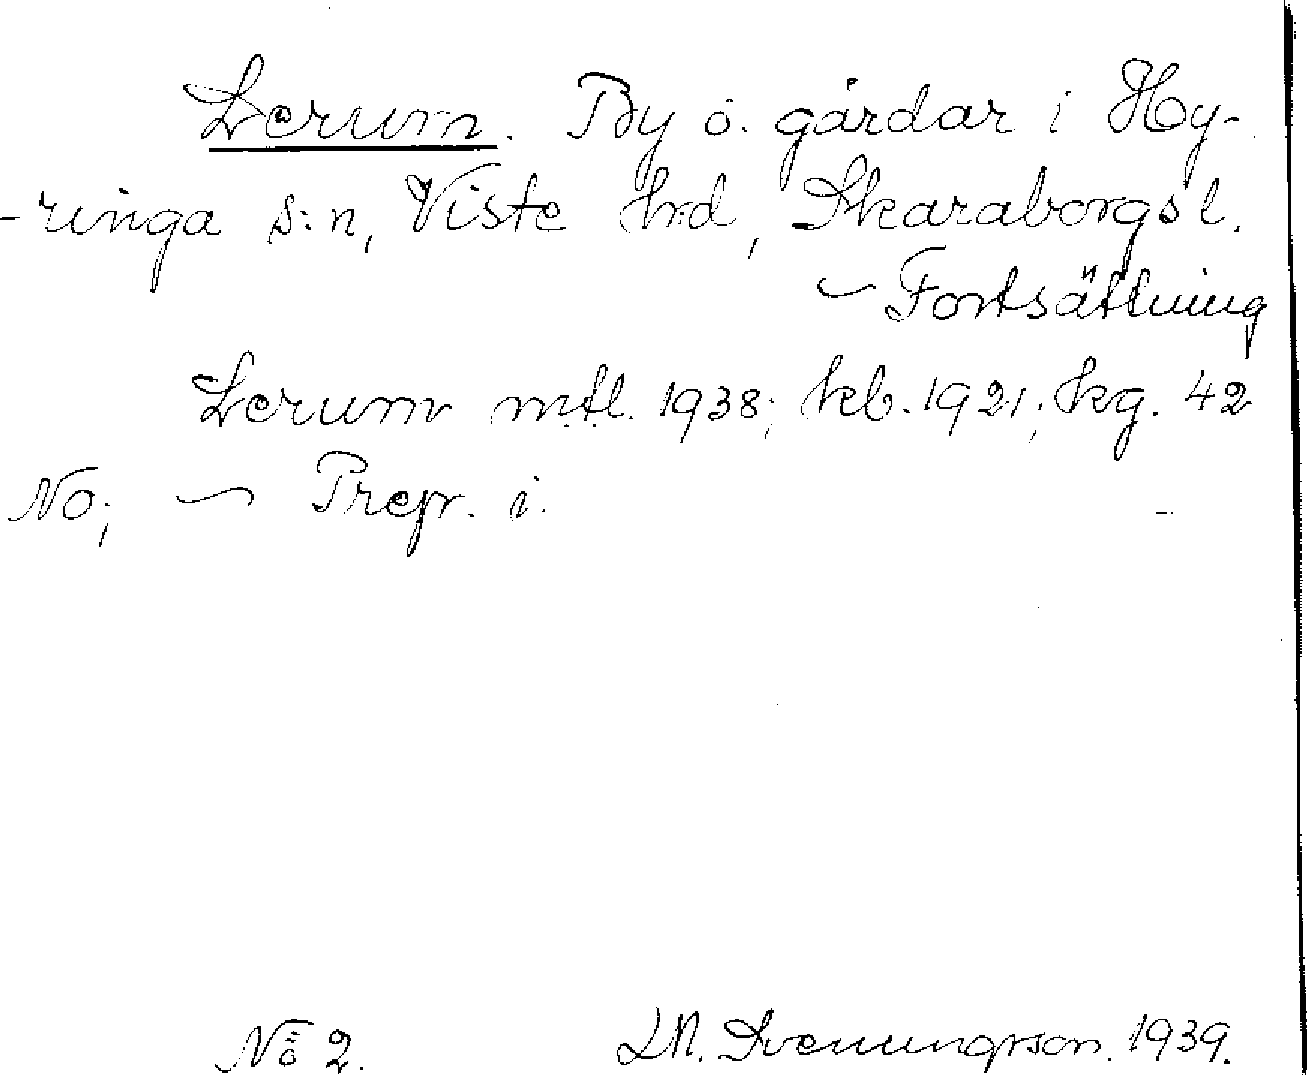 Lerum. By o. gårdar i Hy-
-ringa s:n, Viste hrd, Skaraborgs l.
~ Fortsättning
Lerum mtl. 1938; kb. 1921; kg. 42
No; ~ Prep. i.
No 2. LN. Svenungsson. 1939.